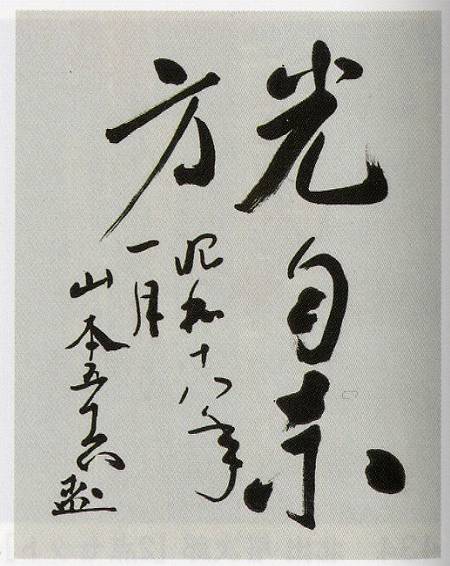 光自東
方
昭和十八年
一月
山本五十六